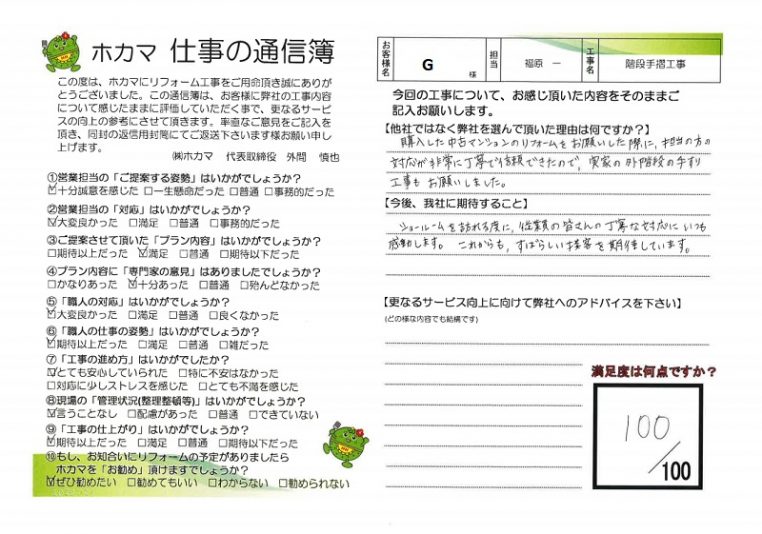 ホカマ 仕事の通信簿
この度は、ホカマにリフォーム工事をご用命頂き誠にありが
とうございました。この通信簿は、お客様に弊社の工事内容
について感じたままに評価していただく事で、更なるサービ
スの向上の参考にさせて頂きます。率直なご意見をご記入を
頂き、同封の返信用封筒にてご返送下さいます様お願い申し
上げます。
㈱ホカマ 代表取締役 外間 慎也
①営業担当の「ご提案する姿勢」はいかがでしょうか？
☑十分誠意を感じた □一生懸命だった □普通 □事務的だった
②営業担当の「対応」はいかがでしょうか？
☑大変良かった □満足 □普通 □事務的だった
③ご提案させて頂いた「プラン内容」はいかがでしょうか？
□期待以上だった ☑満足 □普通 □期待以下だった
④プラン内容に「専門家の意見」はありましたでしょうか？
□かなりあった ☑十分あった □普通 □殆んどなかった
⑤「職人の対応」はいかがでしょうか？
☑大変良かった □満足 □普通 □良くなかった
⑥「職人の仕事の姿勢」はいかがでしょうか？
☑期待以上だった □満足 □普通 □雑だった
⑦「工事の進め方」はいかがでしたか？
☑とても安心していられた □特に不安はなかった
□対応に少しストレスを感じた □とても不満を感じた
⑧現場の「管理状況(整理整頓等)」はいかがでしょうか？
☑言うことなし □配慮があった □普通 □できていない
⑨「工事の仕上がり」はいかがでしょうか？
☑期待以上だった □満足 □普通 □期待以下だった
⑩もし、お知合いにリフォームの予定がありましたら
ホカマを「お勧め」頂けますでしょうか？
☑ぜひ勧めたい □勧めてもいい □わからない □勧められない
お客様名 G 様 担当 福原 一 工事名 階段手摺工事
今回の工事について、お感じ頂いた内容をそのままご
記入お願いします。
【他社ではなく弊社を選んで頂いた理由は何ですか？】
購入した中古マンションのリフォームをお願いした際に、担当の方の
対応が非常に丁寧で信頼できたので、実家の外階段の手すり
工事もお願いしました。
【今後、我社に期待すること】
ショールームを訪れる度に、従業員の皆さんの丁寧な対応にいつも
感動します。これからも、すばらしい接客を期待しています。
【更なるサービス向上に向けて弊社へのアドバイスを下さい】
(どの様な内容でも結構です)
満足度は何点ですか？
100
/100